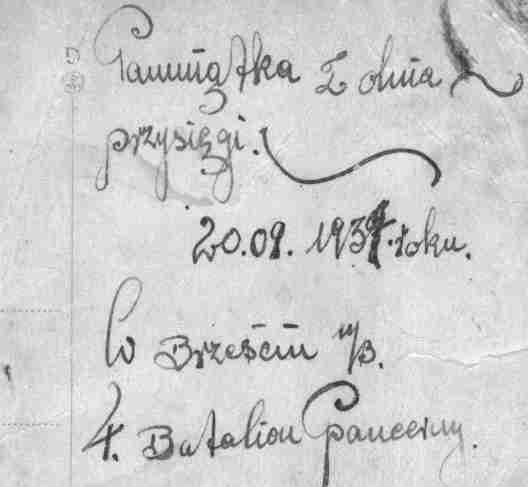 Pamiątka z dnia
przysięgi.
20.09. 1937. roku.
W Brześciu n/B.
4. Batalion Pancerny.